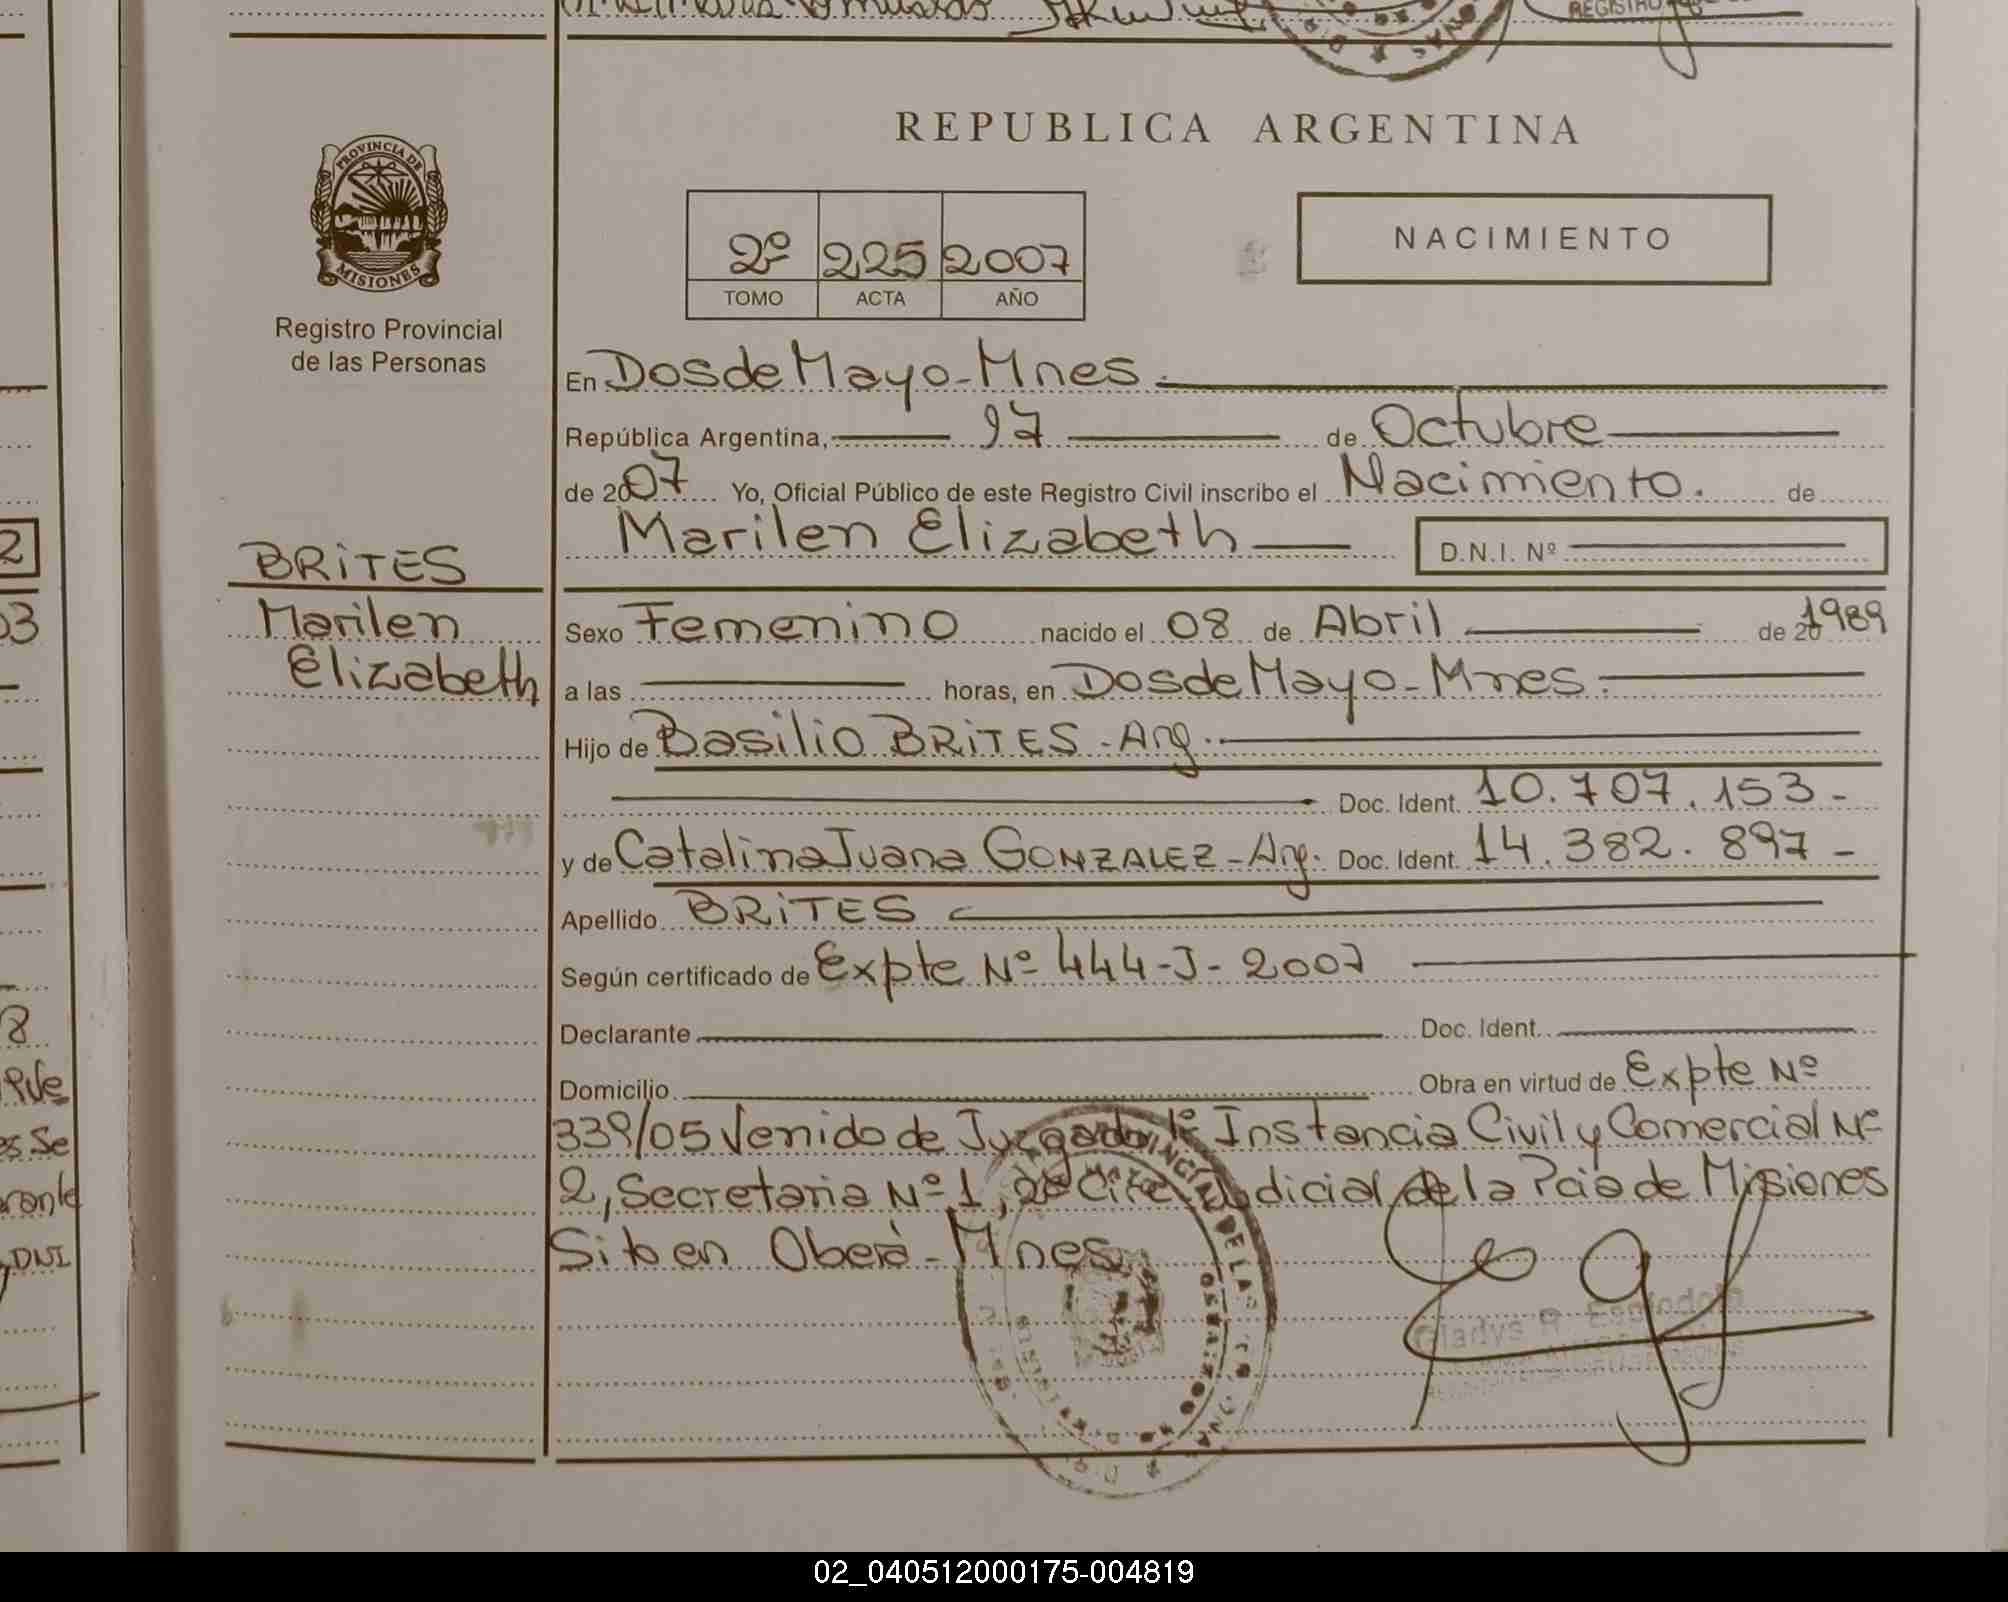 REPUBLICA ARGENTINA
PROVINCIA DE
MISIONES
Registro Provincial
de las Personas
2º 225 2007
TOMO ACTA AÑO
NACIMIENTO
En Dos de Mayo - Mnes.
República Argentina, 17 de Octubre
de 2007 Yo, Oficial Público de este Registro Civil inscribo el Nacimiento. de
Marilen Elizabeth D.N.I. Nº
BRITES
Marilen
Elizabeth
Sexo Femenino nacido el 08 de Abril de 20 1989
a las horas, en Dos de Mayo - Mnes.
Hijo de Basilio BRITES - Arg.
Doc. Ident. 10.707.153-
y de Catalina Juana GONZALEZ - Arg. Doc. Ident. 14.382.897-
Apellido BRITES
Según certificado de Expte Nº 444-J-2007
Declarante Doc. Ident.
Domicilio Obra en virtud de Expte Nº
339/05 Venido de Juzgado 1º Instancia Civil y Comercial Nº
2, Secretaria Nº 1, 2º Circ. Judicial de la Pcia de Misiones
Sito en Oberá - Mnes.
Gladys R.
2
03
8
es se
rante
DNI
REGISTRO
02_040512000175-004819